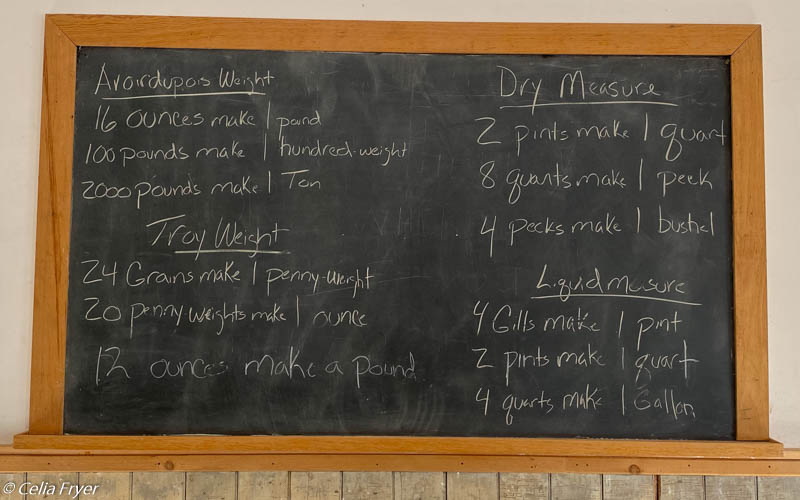 Avoirdupois Weight
16 ounces make 1 pound
100 pounds make 1 hundred-weight
2000 pounds make 1 Ton
Troy Weight
24 Grains make 1 penny-weight
20 penny-weights make 1 ounce
12 ounces make a pound
Dry Measure
2 pints make 1 quart
8 quarts make 1 peck
4 pecks make 1 bushel
Liquid measure
4 Gills make 1 pint
2 pints make 1 quart
4 quarts make 1 Gallon
© Celia Fryer